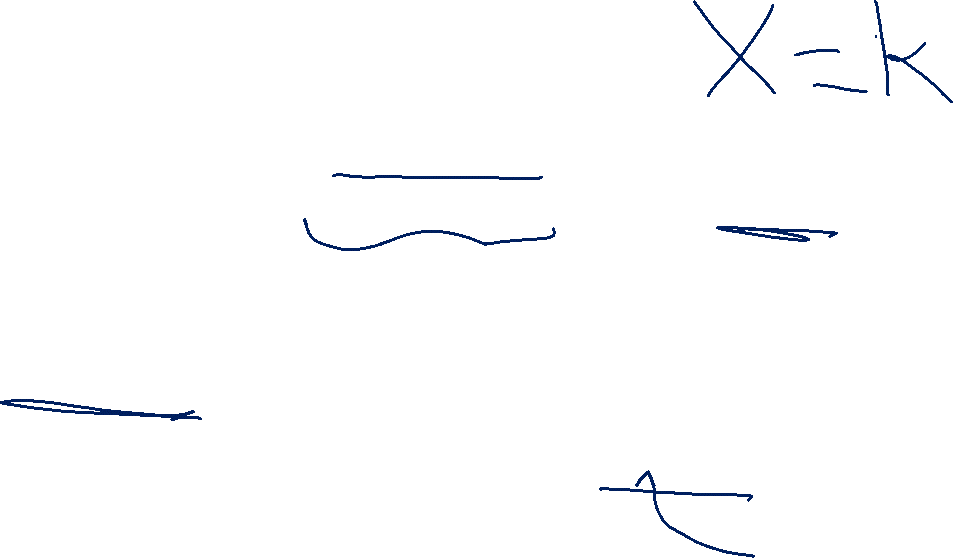 X = k